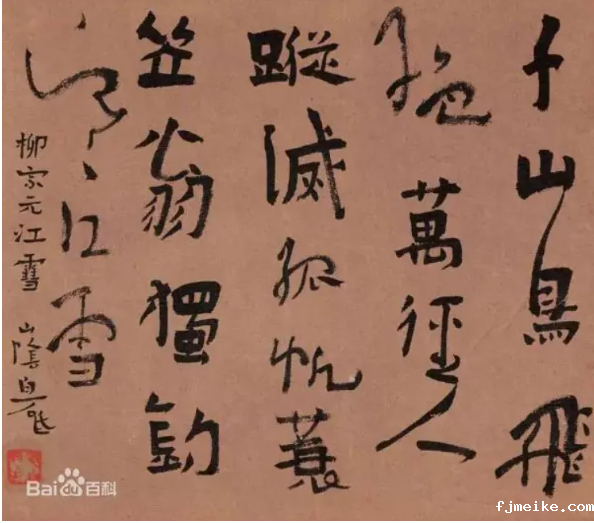 千山鳥飛
絕萬徑人
蹤滅孤帆蓑
笠翁獨釣
寒江雪
柳宗元江雪 山陰白砥
Baidu百科
fjmeike.com